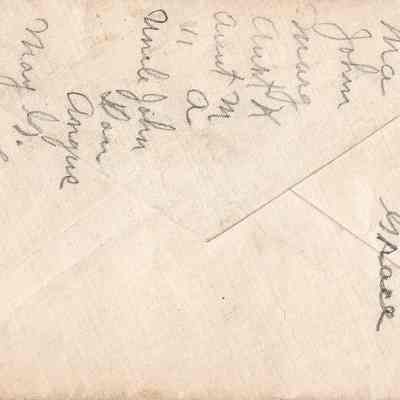 Ma
John
Marg
Aunt K
Aunt M
" a
Uncle John
Don
Angus
May G.
Grace